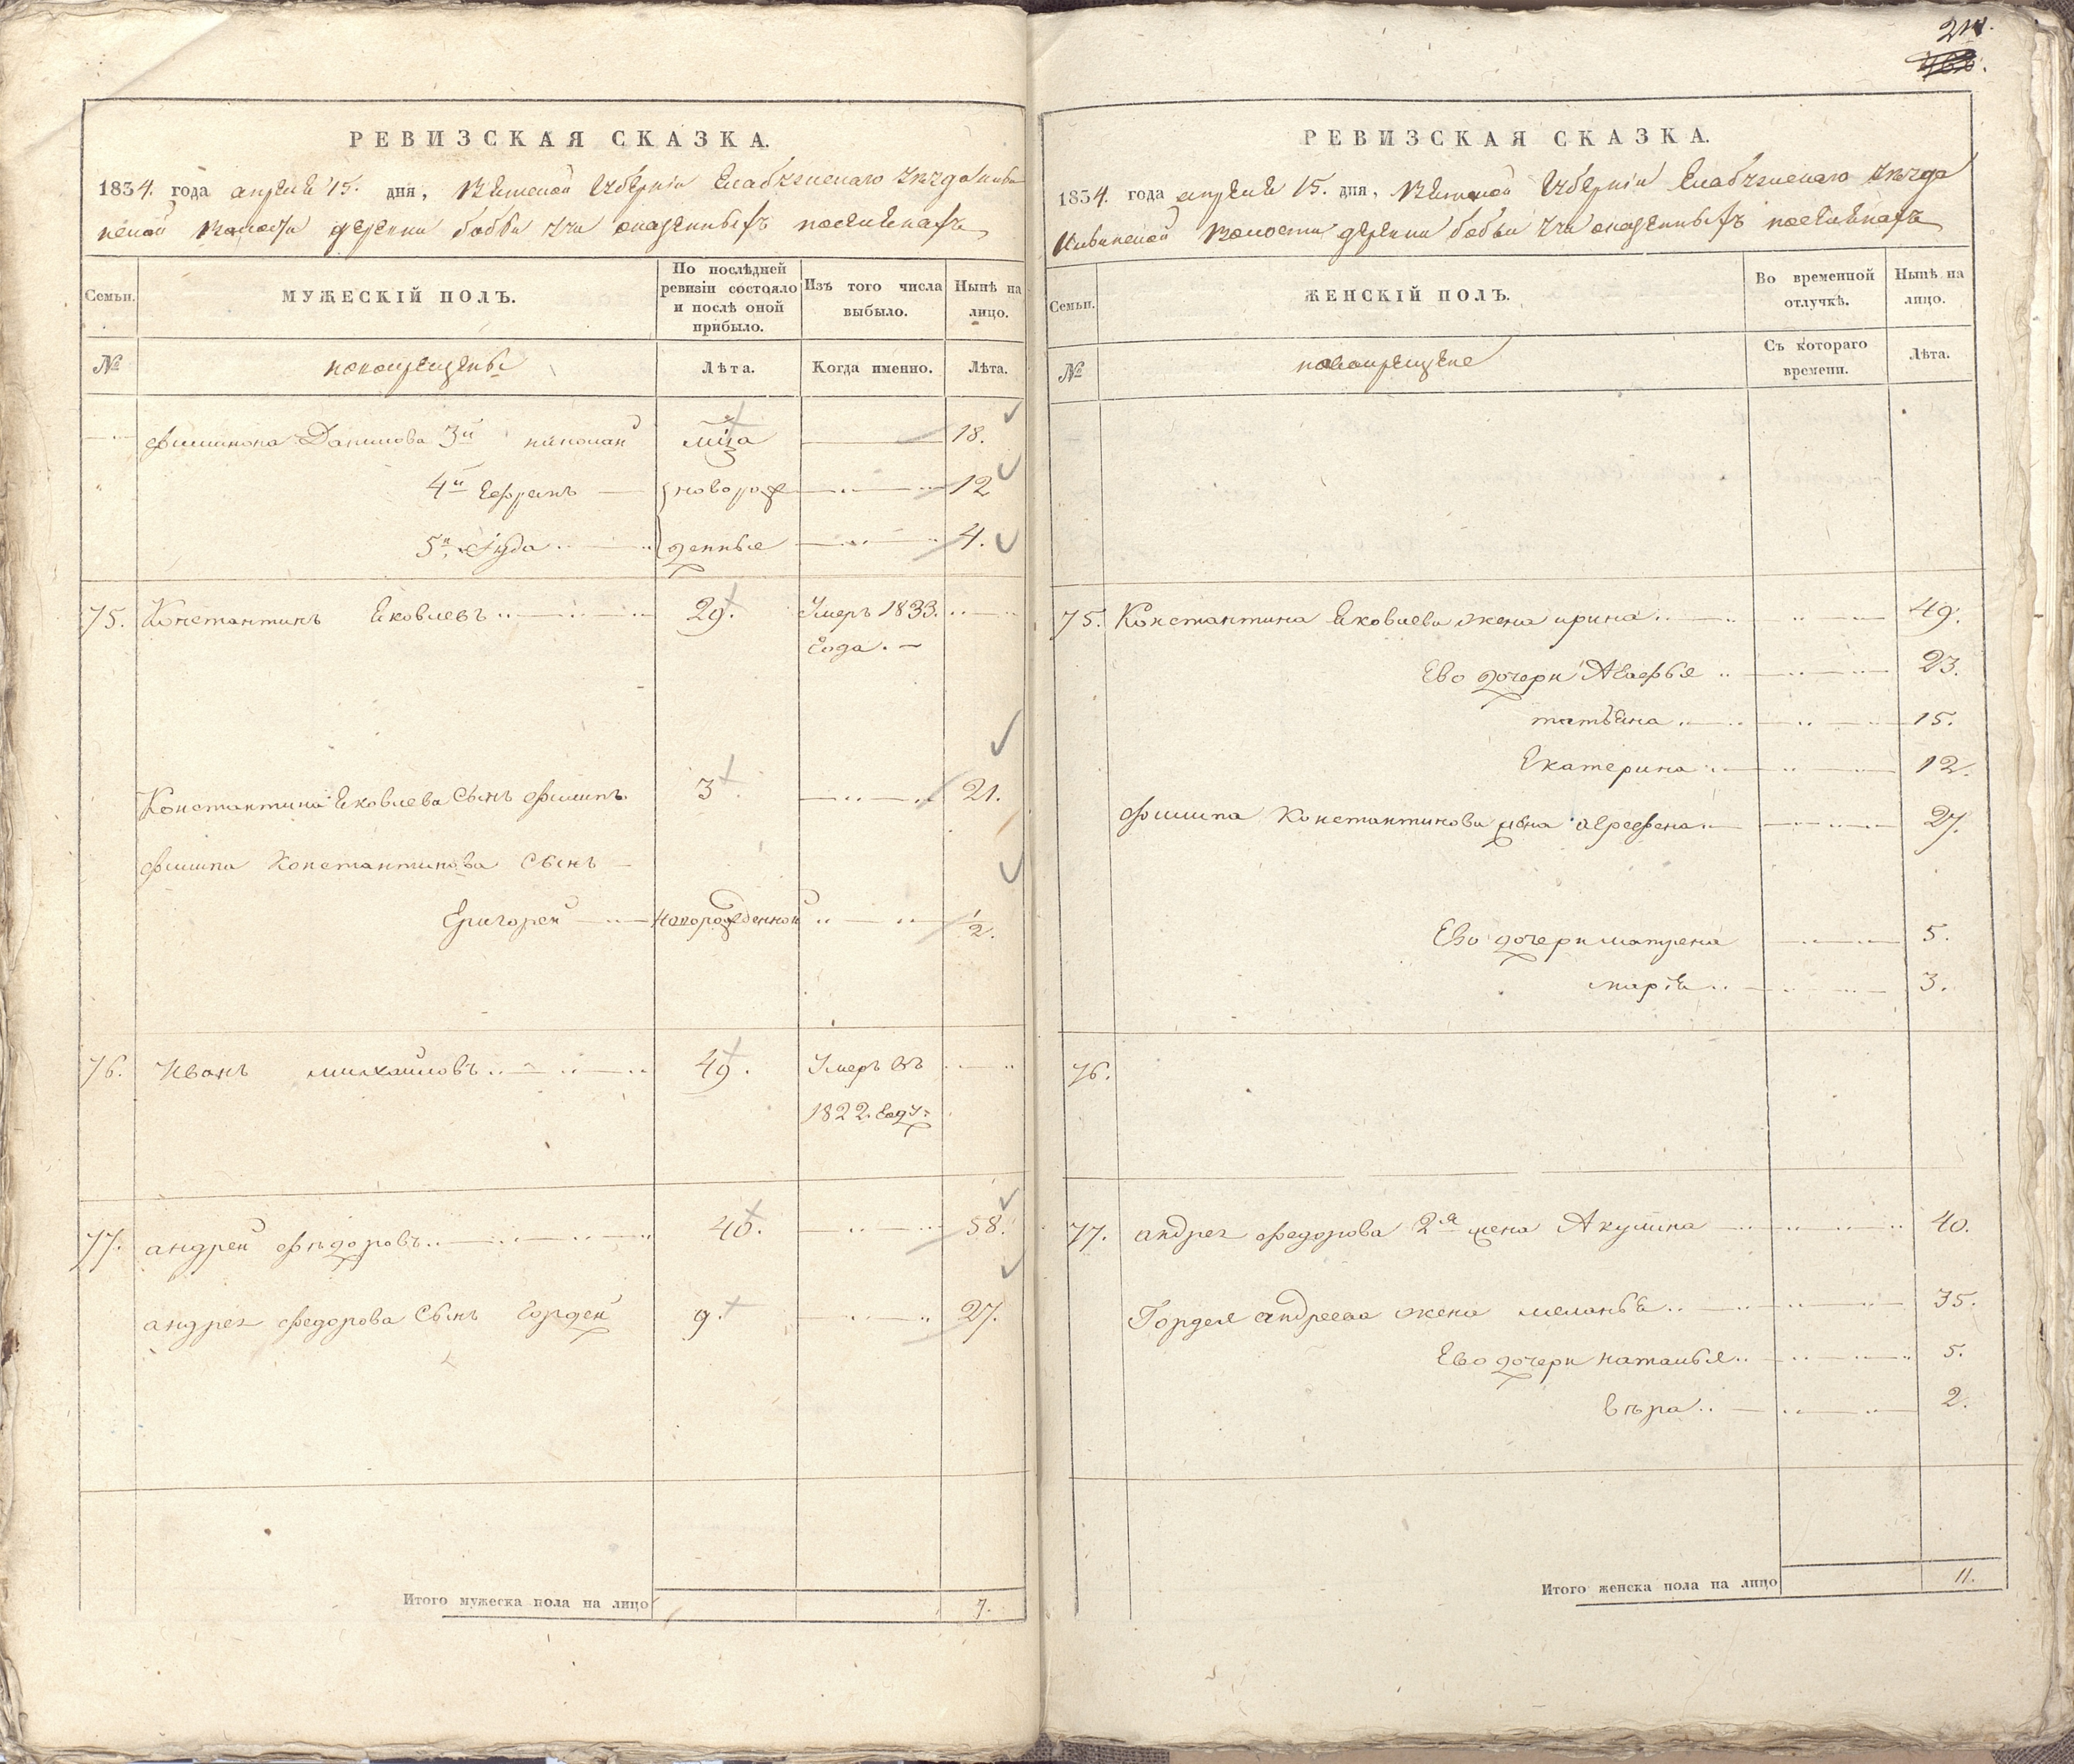 РЕВИЗСКАЯ СКАЗКА.
1834. года апреля 15. дня, Вятской Губернiи Елабужскаго уезда
волости деревни бобьи учи поселенахъ
Семьи.
МУЖЕСКIЙ ПОЛЪ.
По послѣдней ревизiи состояло и послѣ оной прибыло.
Изъ того числа выбыло.
Нынѣ на лицо.
№
новокрещены
Лѣта.
Когда именно.
Лѣта.
Филимона Данилова 3й 18.
4й Ефремъ новорож 12
5й Iуда денные 4.
75. Константинъ Яковлевъ 29. Умеръ 1833.
Года.
Константина Яковлева Сынъ Филипъ 3 21.
Филипа Константинова Сынъ
Григорей Новорожденной 1/2.
76. Иванъ михайловъ 49. Умеръ въ
1822. Году
77. андрей Фёдоровъ 40. 58.
андрея Федорова Сынъ Гордей 9. 27.
Итого мужеска пола на лицо 7.
РЕВИЗСКАЯ СКАЗКА.
1834. года апреля 15. дня, Вятской Губернiи Елабужскаго уезда
волости деревни бобьи учи поселенахъ
Семьи.
ЖЕНСКIЙ ПОЛЪ.
Во временной отлучкѣ.
Нынѣ на лицо.
№
новокрещене
Съ котораго времени.
Лѣта.
75. Константина Яковлева жена ирина 49.
Ево дочери Агафья 23.
татьяна 15.
Екатерина 12.
Филипа Константинова жена 27.
Ево дочери матрена 5.
марiя 3.
76.
77. андрея федорова 2я жена Акулина 40.
Гордея андреева жена меланья 35.
Ево дочери наталья 5.
Вѣра 2.
Итого женска пола на лицо 11.